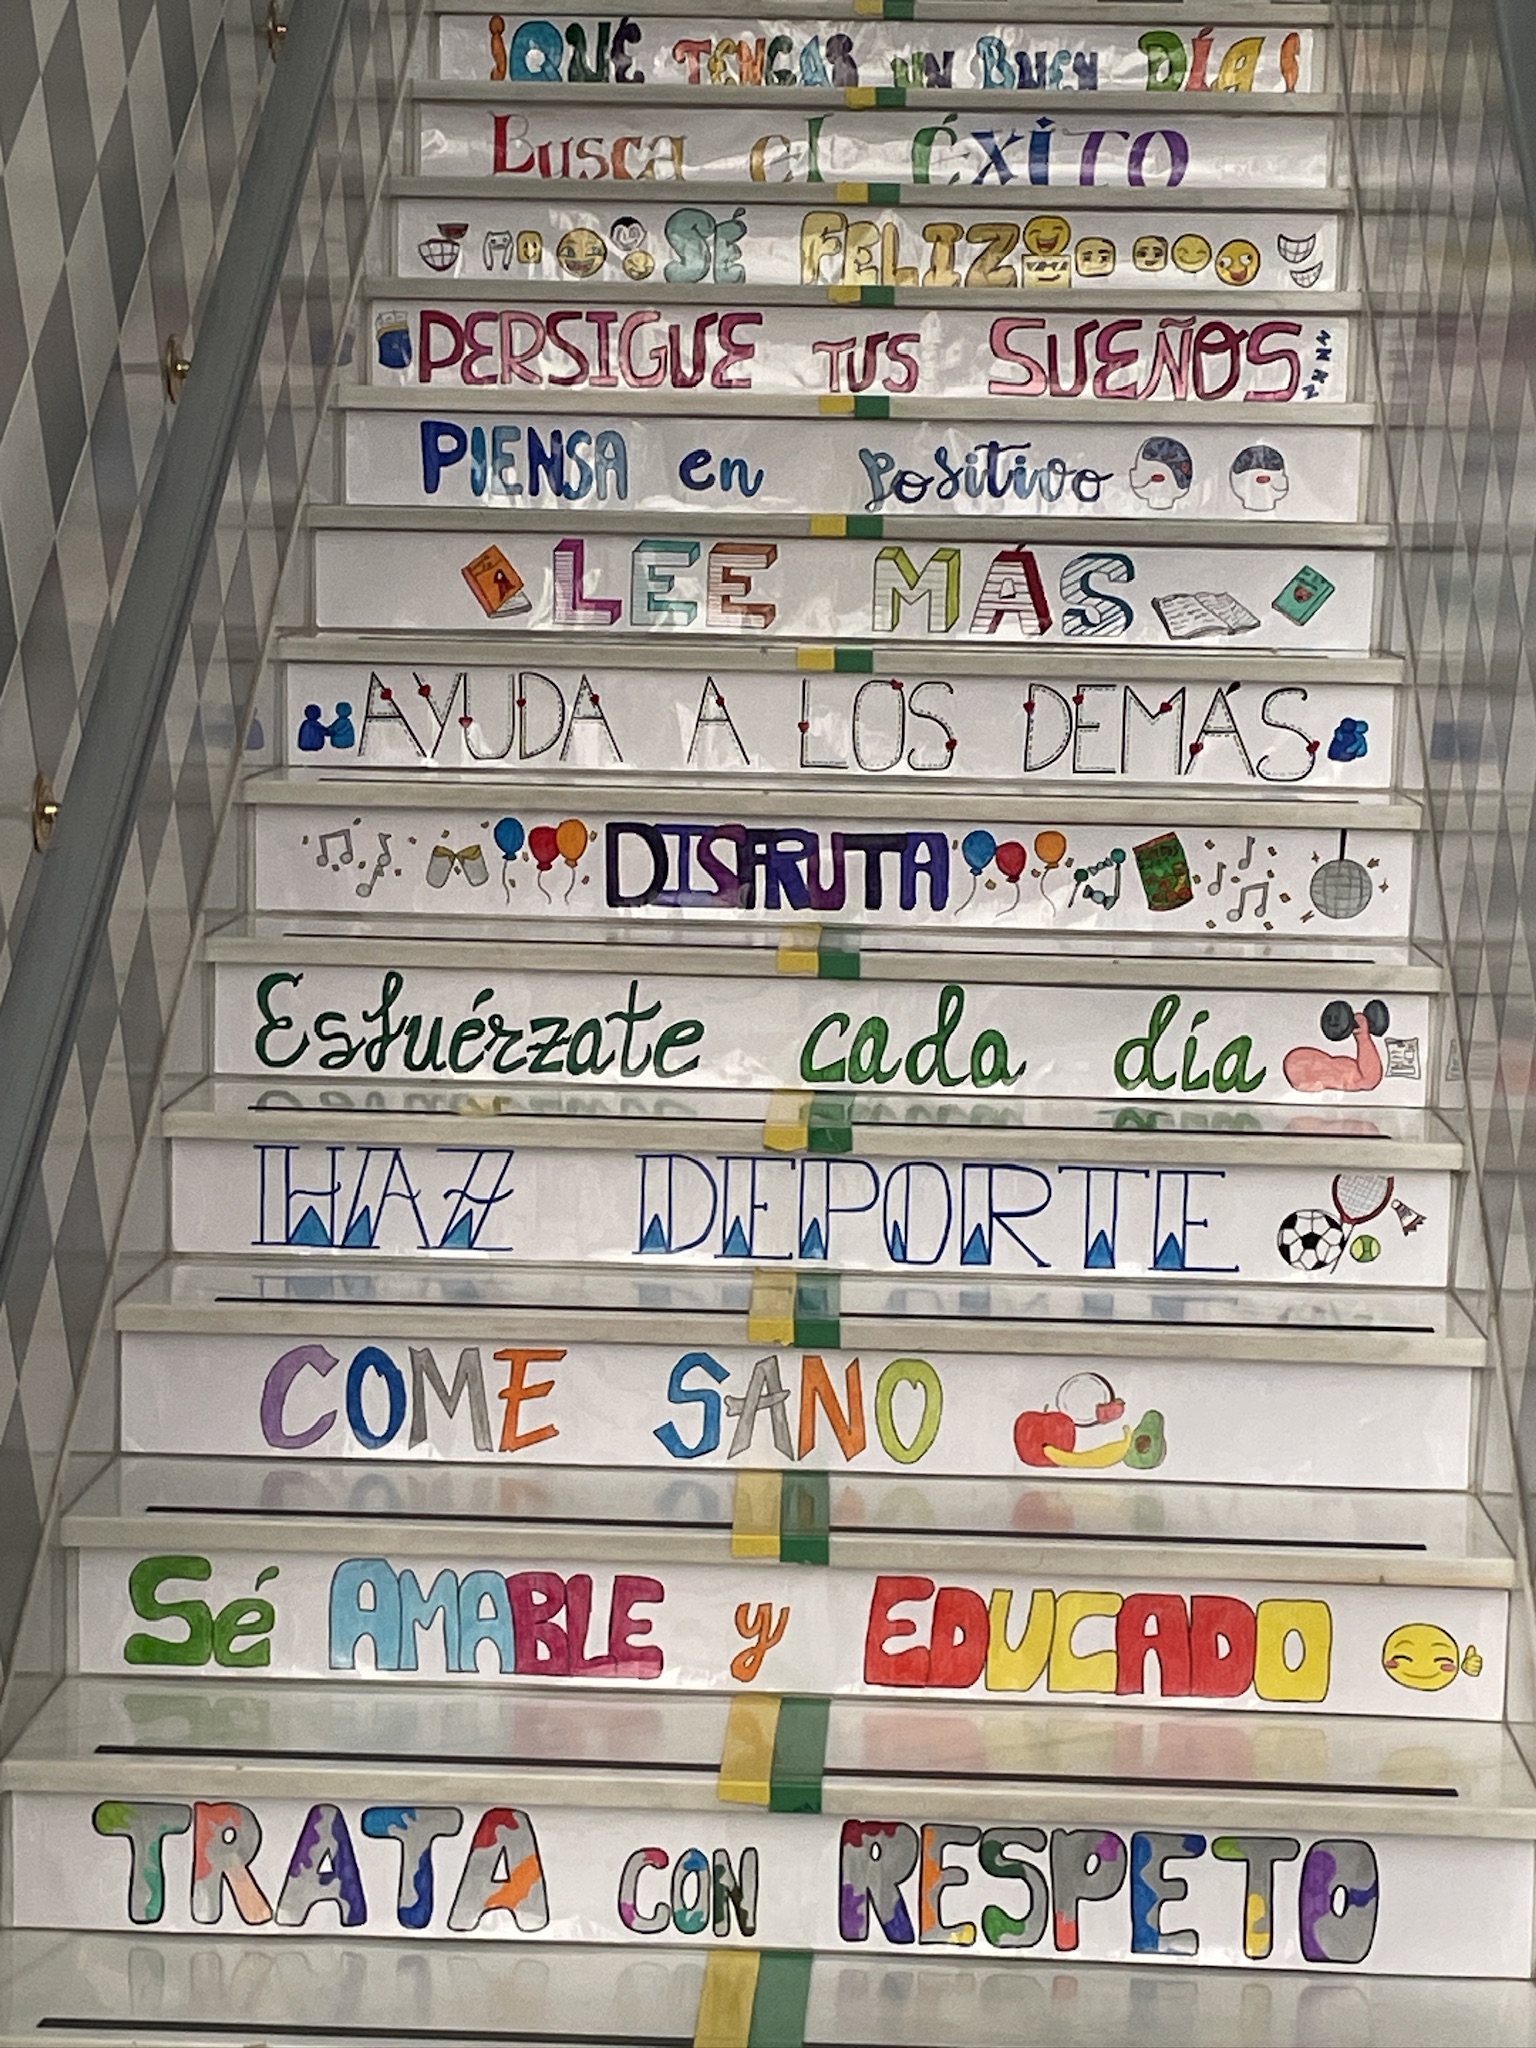 ¡QUÉ TENGAS UN BUEN DÍA!
Busca el éxito
SÉ FELIZ
PERSIGUE TUS SUEÑOS
PIENSA en positivo
LEE MÁS
AYUDA A LOS DEMÁS
DISFRUTA
Esfuérzate cada día
HAZ DEPORTE
COME SANO
Sé AMABLE y EDUCADO
TRATA CON RESPETO